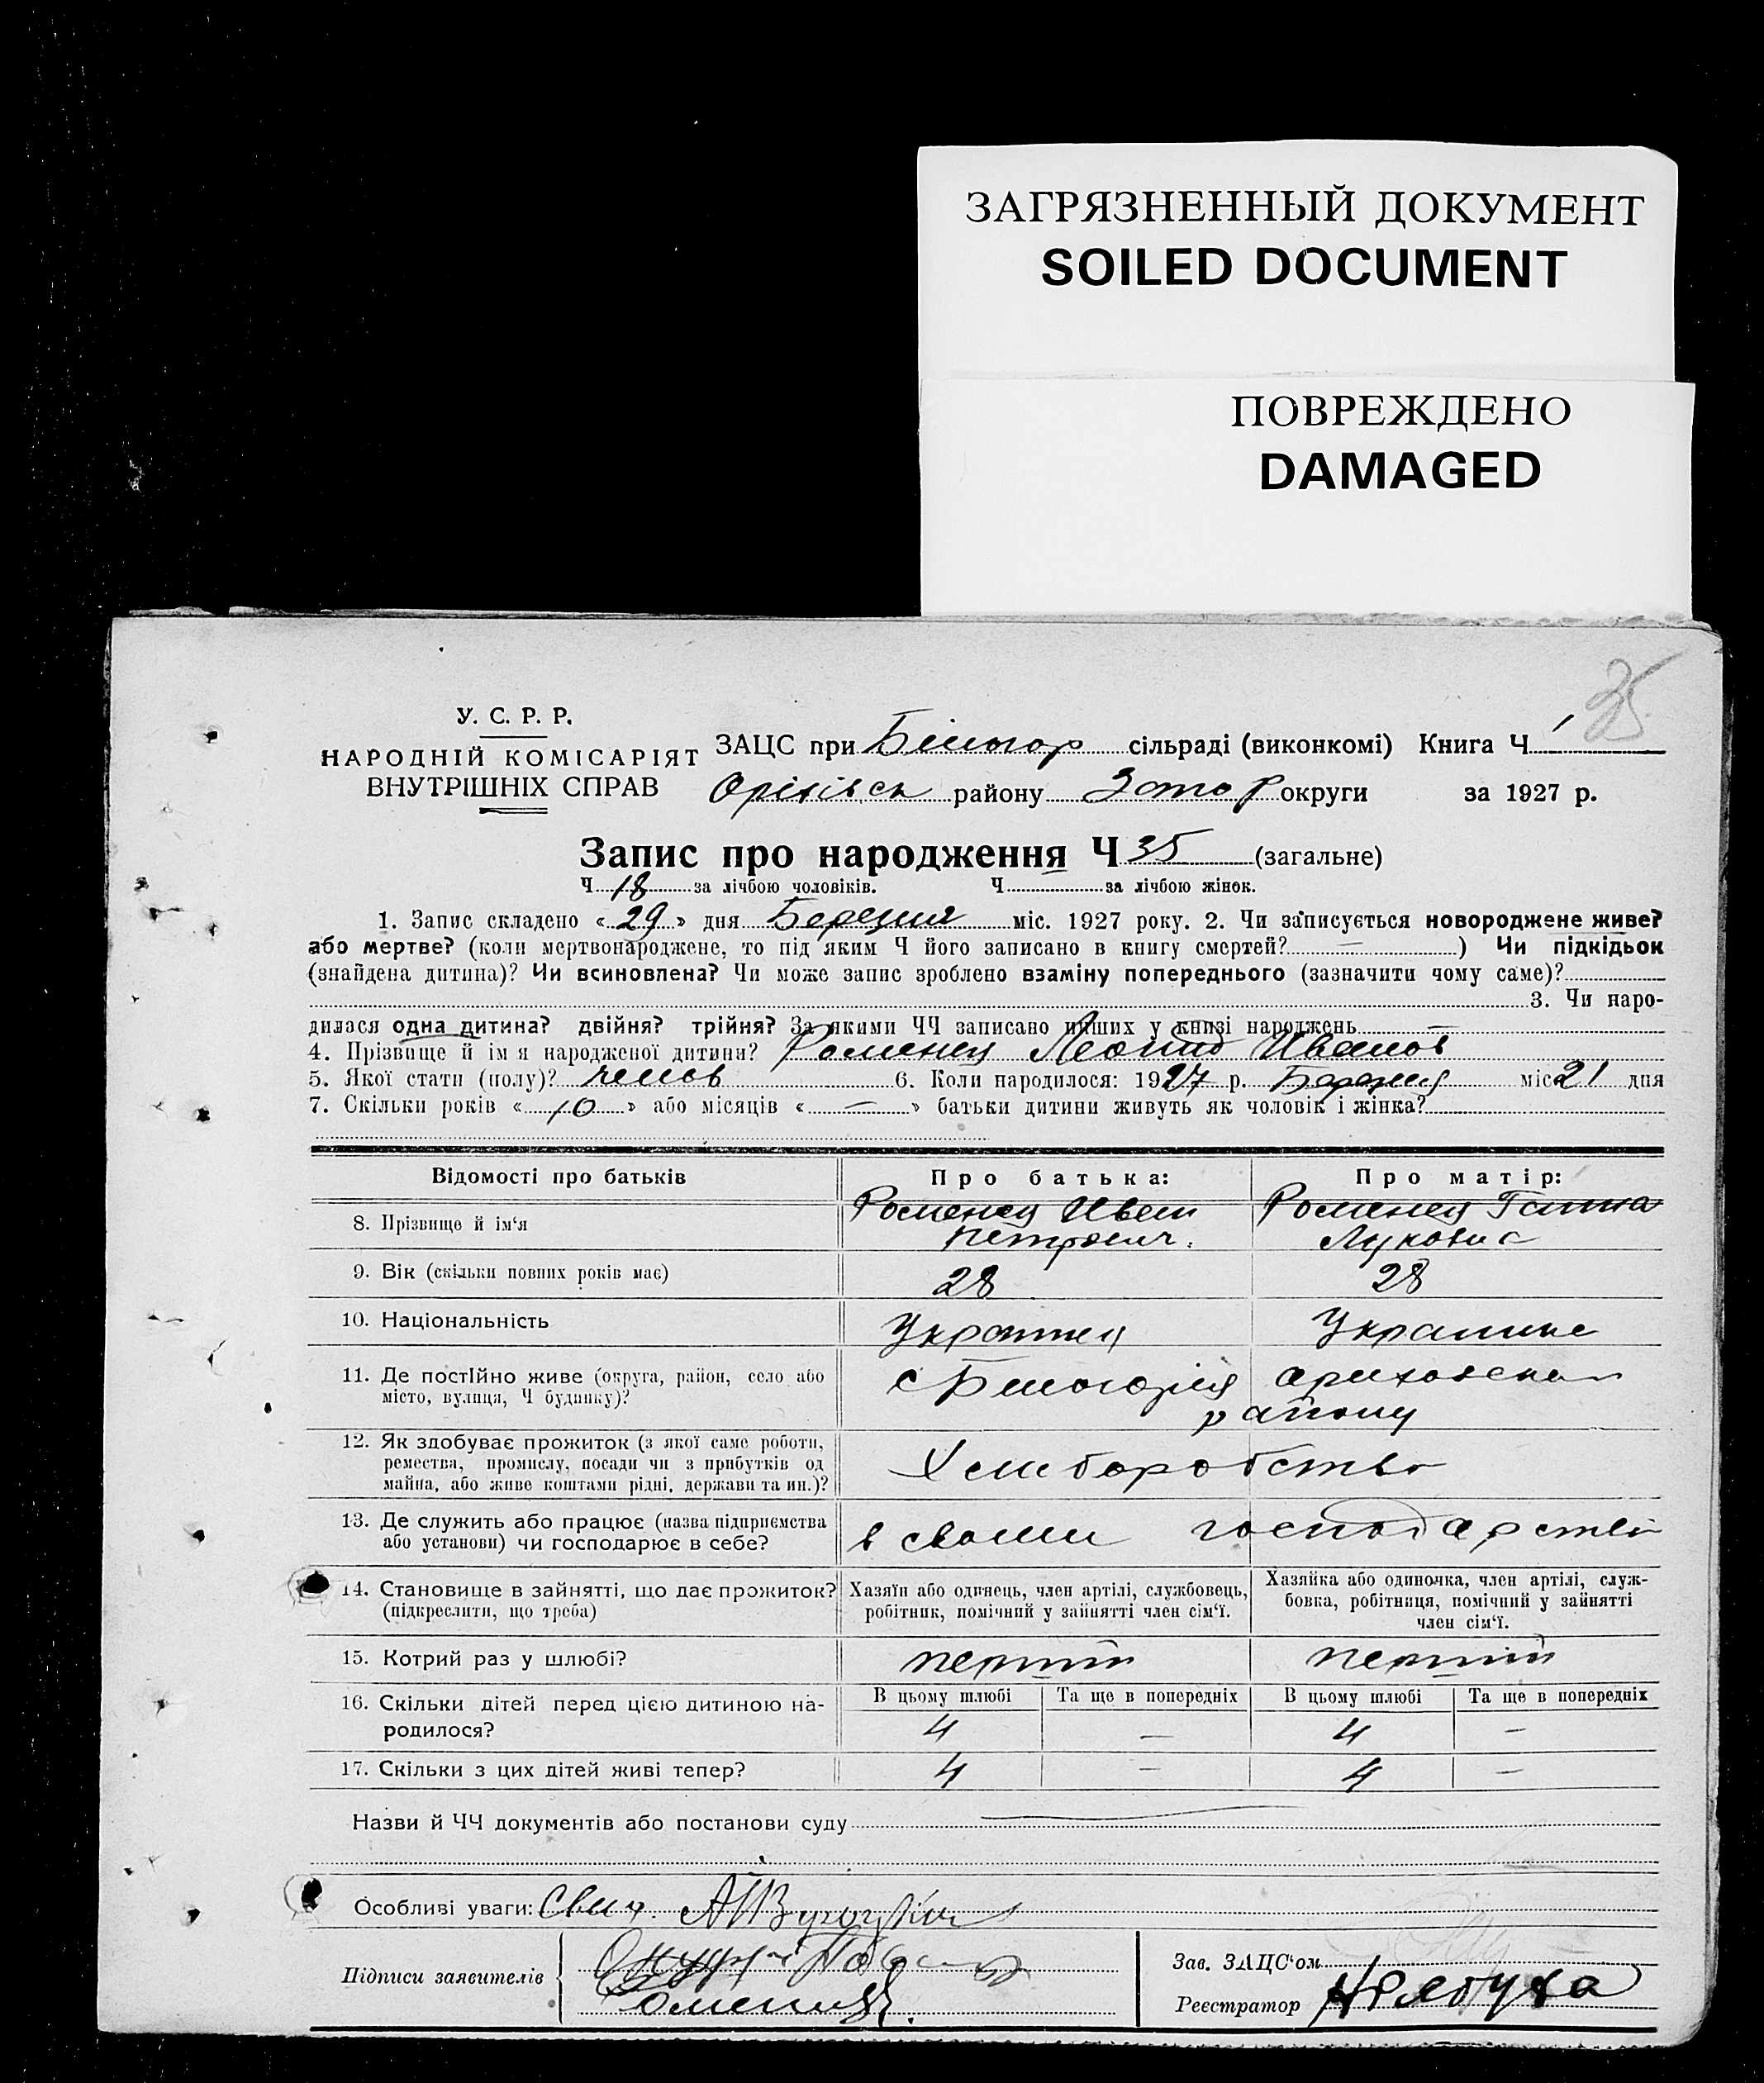 ЗАГРЯЗНЕННЫЙ ДОКУМЕНТ
SOILED DOCUMENT
ПОВРЕЖДЕНО
DAMAGED
35
У. С. Р. Р.
НАРОДНІЙ КОМІСАРІЯТ
ВНУТРІШНІХ СПРАВ
ЗАЦС при Білогор сільраді (виконкомі) Книга Ч 1
Оріхівськ району Запор округи за 1927 р.
Запис про народження Ч 35 (загальне)
Ч 18 за лічбою чоловіків. Ч за лічбою жінок.
1. Запис складено « 29 » дня Березня міс. 1927 року. 2. Чи записується новороджене живе?
або мертве? (коли мертвонароджене, то під яким Ч його записано в книгу смертей? — ) Чи підкідьок
(знайдена дитина)? Чи всиновлена? Чи може запис зроблено взаміну попереднього (зазначити чому саме)?
3. Чи наро-
дилася одна дитина? двійня? трійня? За якими ЧЧ записано инших у книзі народжень —
4. Прізвище й ім я народженої дитини? Роменец Леонид Иванов
5. Якої стати (полу)? чолов 6. Коли народилося: 1927 р. Березня міс. 21 дня
7. Скільки років « 10 » або місяців « — » батьки дитини живуть як чоловік і жінка?
Відомості про батьків Про батька: Про матір:
8. Прізвище й ім‘я Роменец Иван Петрович. Роменец Ганна Луковна
9. Вік (скільки повних років має) 28 28
10. Національність Украинец Украинка
11. Де постійно живе (округа, район, село або
місто, вулиця, Ч будинку)?
с Білогорця Ориховского
району
12. Як здобуває прожиток (з якої саме роботи,
ремества, промислу, посади чи з прибутків од
майна, або живе коштами рідні, держави та ин.)?
Хлиборобство
13. Де служить або працює (назва підприємства
або установи) чи господарює в себе?
в своїм господарстві
14. Становище в зайнятті, що дає прожиток?
(підкреслити, що треба)
Хазяїн або одинець, член артілі, службовець,
робітник, помічний у зайнятті член сім‘ї.
Хазяйка або одиночка, член артілі, служ-
бовка, робітниця, помічний у зайнятті
член сім‘ї.
15. Котрий раз у шлюбі? перший перший
16. Скільки дітей перед цією дитиною на-
родилося?
В цьому шлюбі Та ще в попередніх В цьому шлюбі Та ще в попередніх
4 — 4 —
17. Скільки з цих дітей живі тепер? 4 — 4 —
Назви й ЧЧ документів або постанови суду
Особливі уваги:
Підписи заявителів
Роменец
Зав. ЗАЦС‘ом
Реєстратор